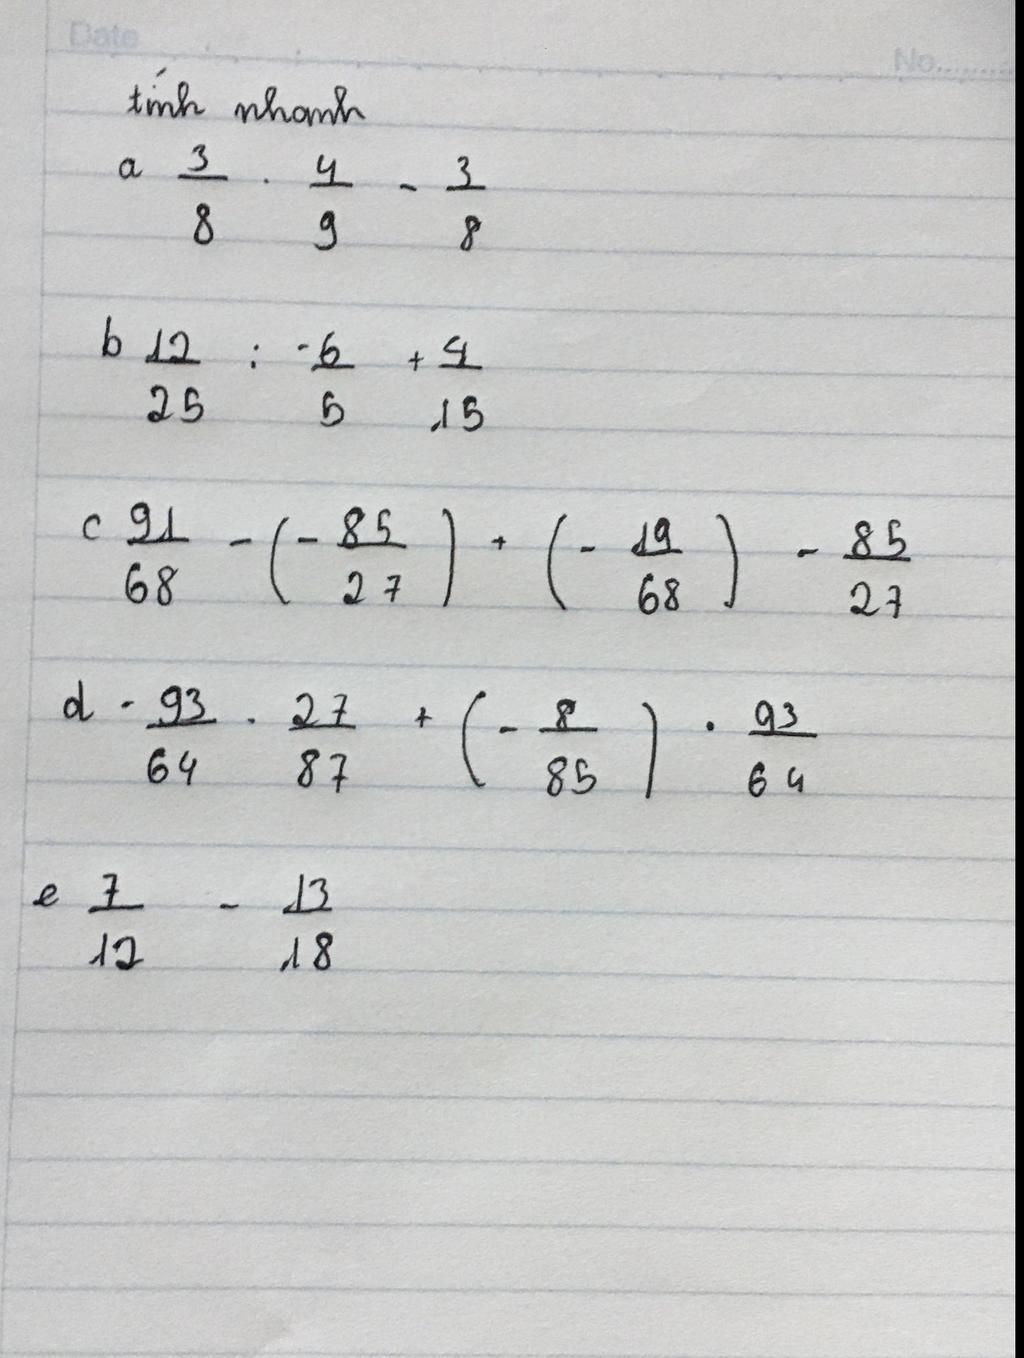 Date
No..........
tính nhanh
a 3/8 . 4/9 - 3/8
b 12/25 : -6/5 + 4/15
c 91/68 - (- 85/27) + (- 19/68) - 85/27
d - 93/64 . 27/87 + (- 8/85) . 93/64
e 7/12 - 13/18